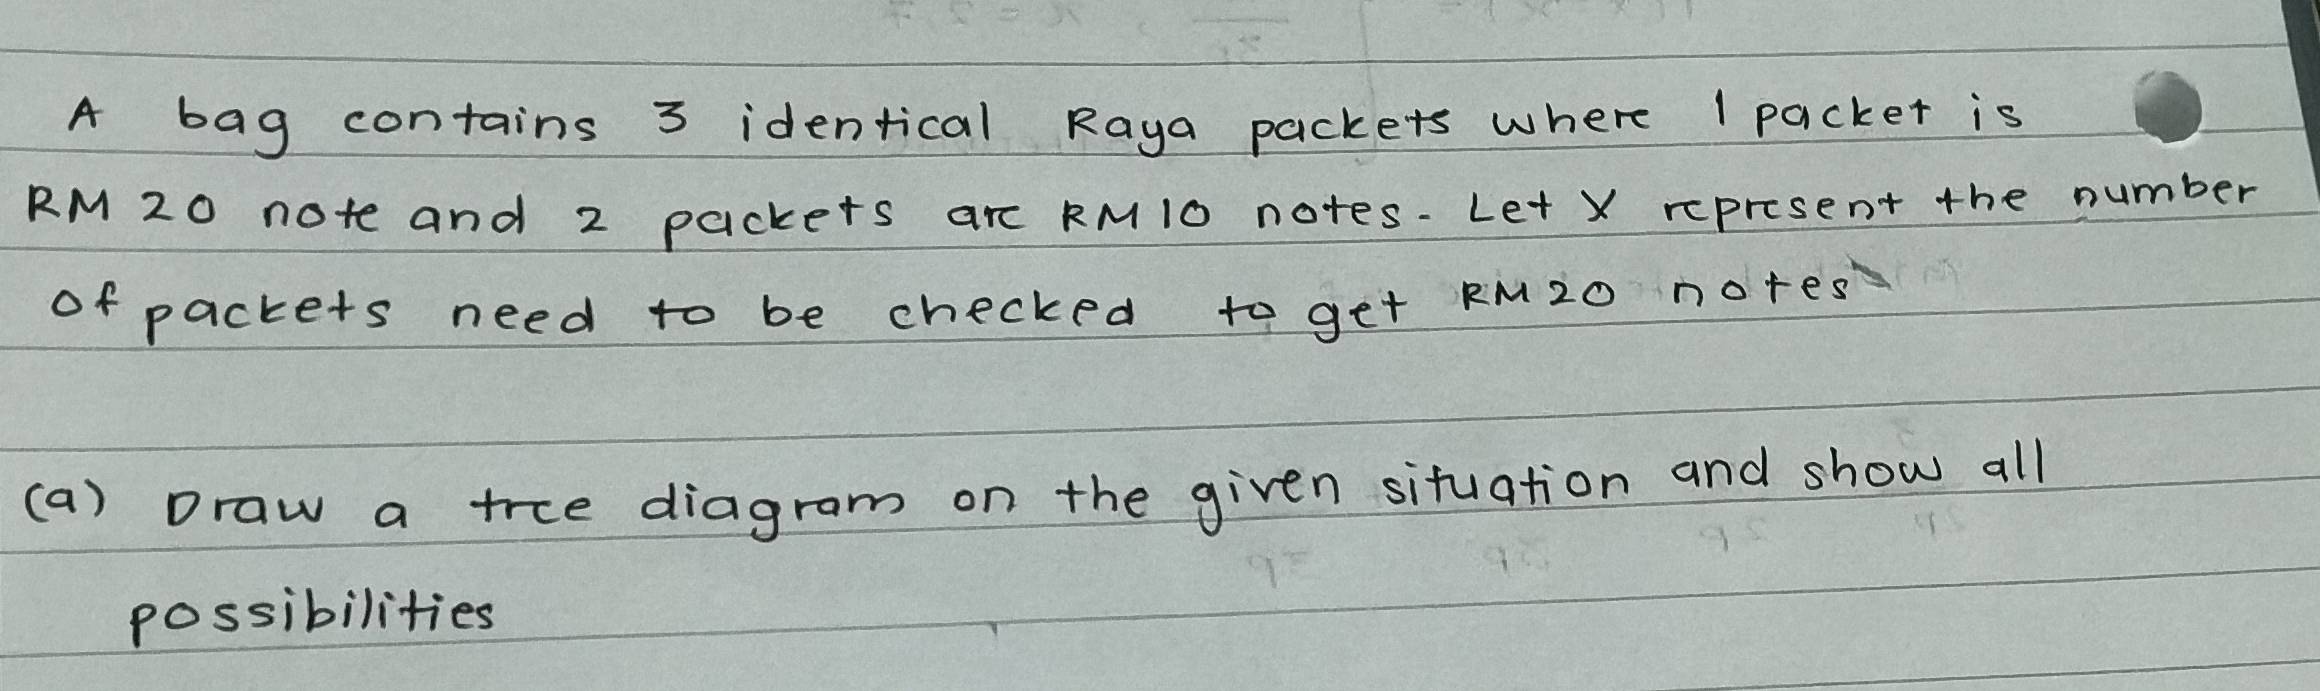 A bag contains 3 identical Raya packets where 1 packet is
RM 20 note and 2 packets are RM 10 notes. Let X represent the number
of packets need to be checked to get RM 20 notes
(a) Draw a tree diagram on the given situation and show all
possibilities